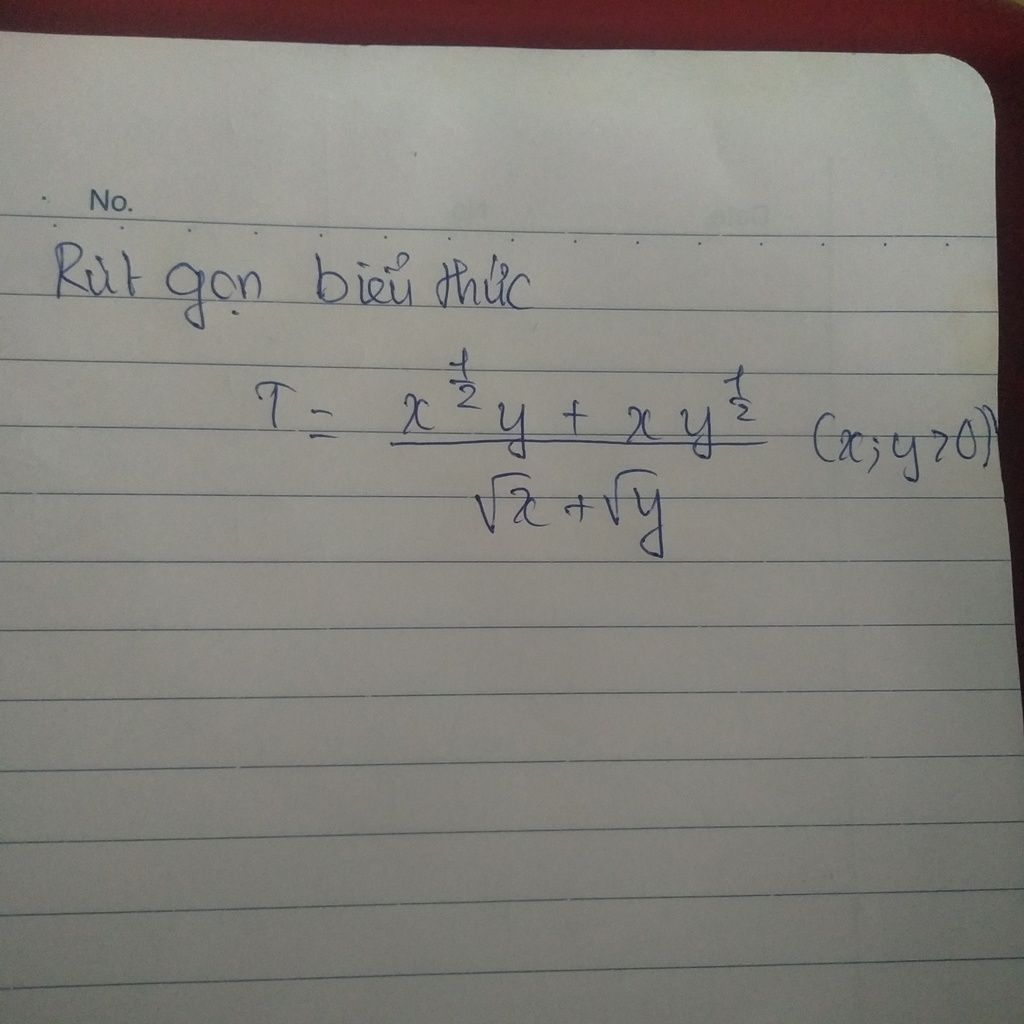 No.
Rút gọn biểu thức
T = \frac{x^{\frac{1}{2}}y + xy^{\frac{1}{2}}}{\sqrt{x} + \sqrt{y}} (x; y > 0)